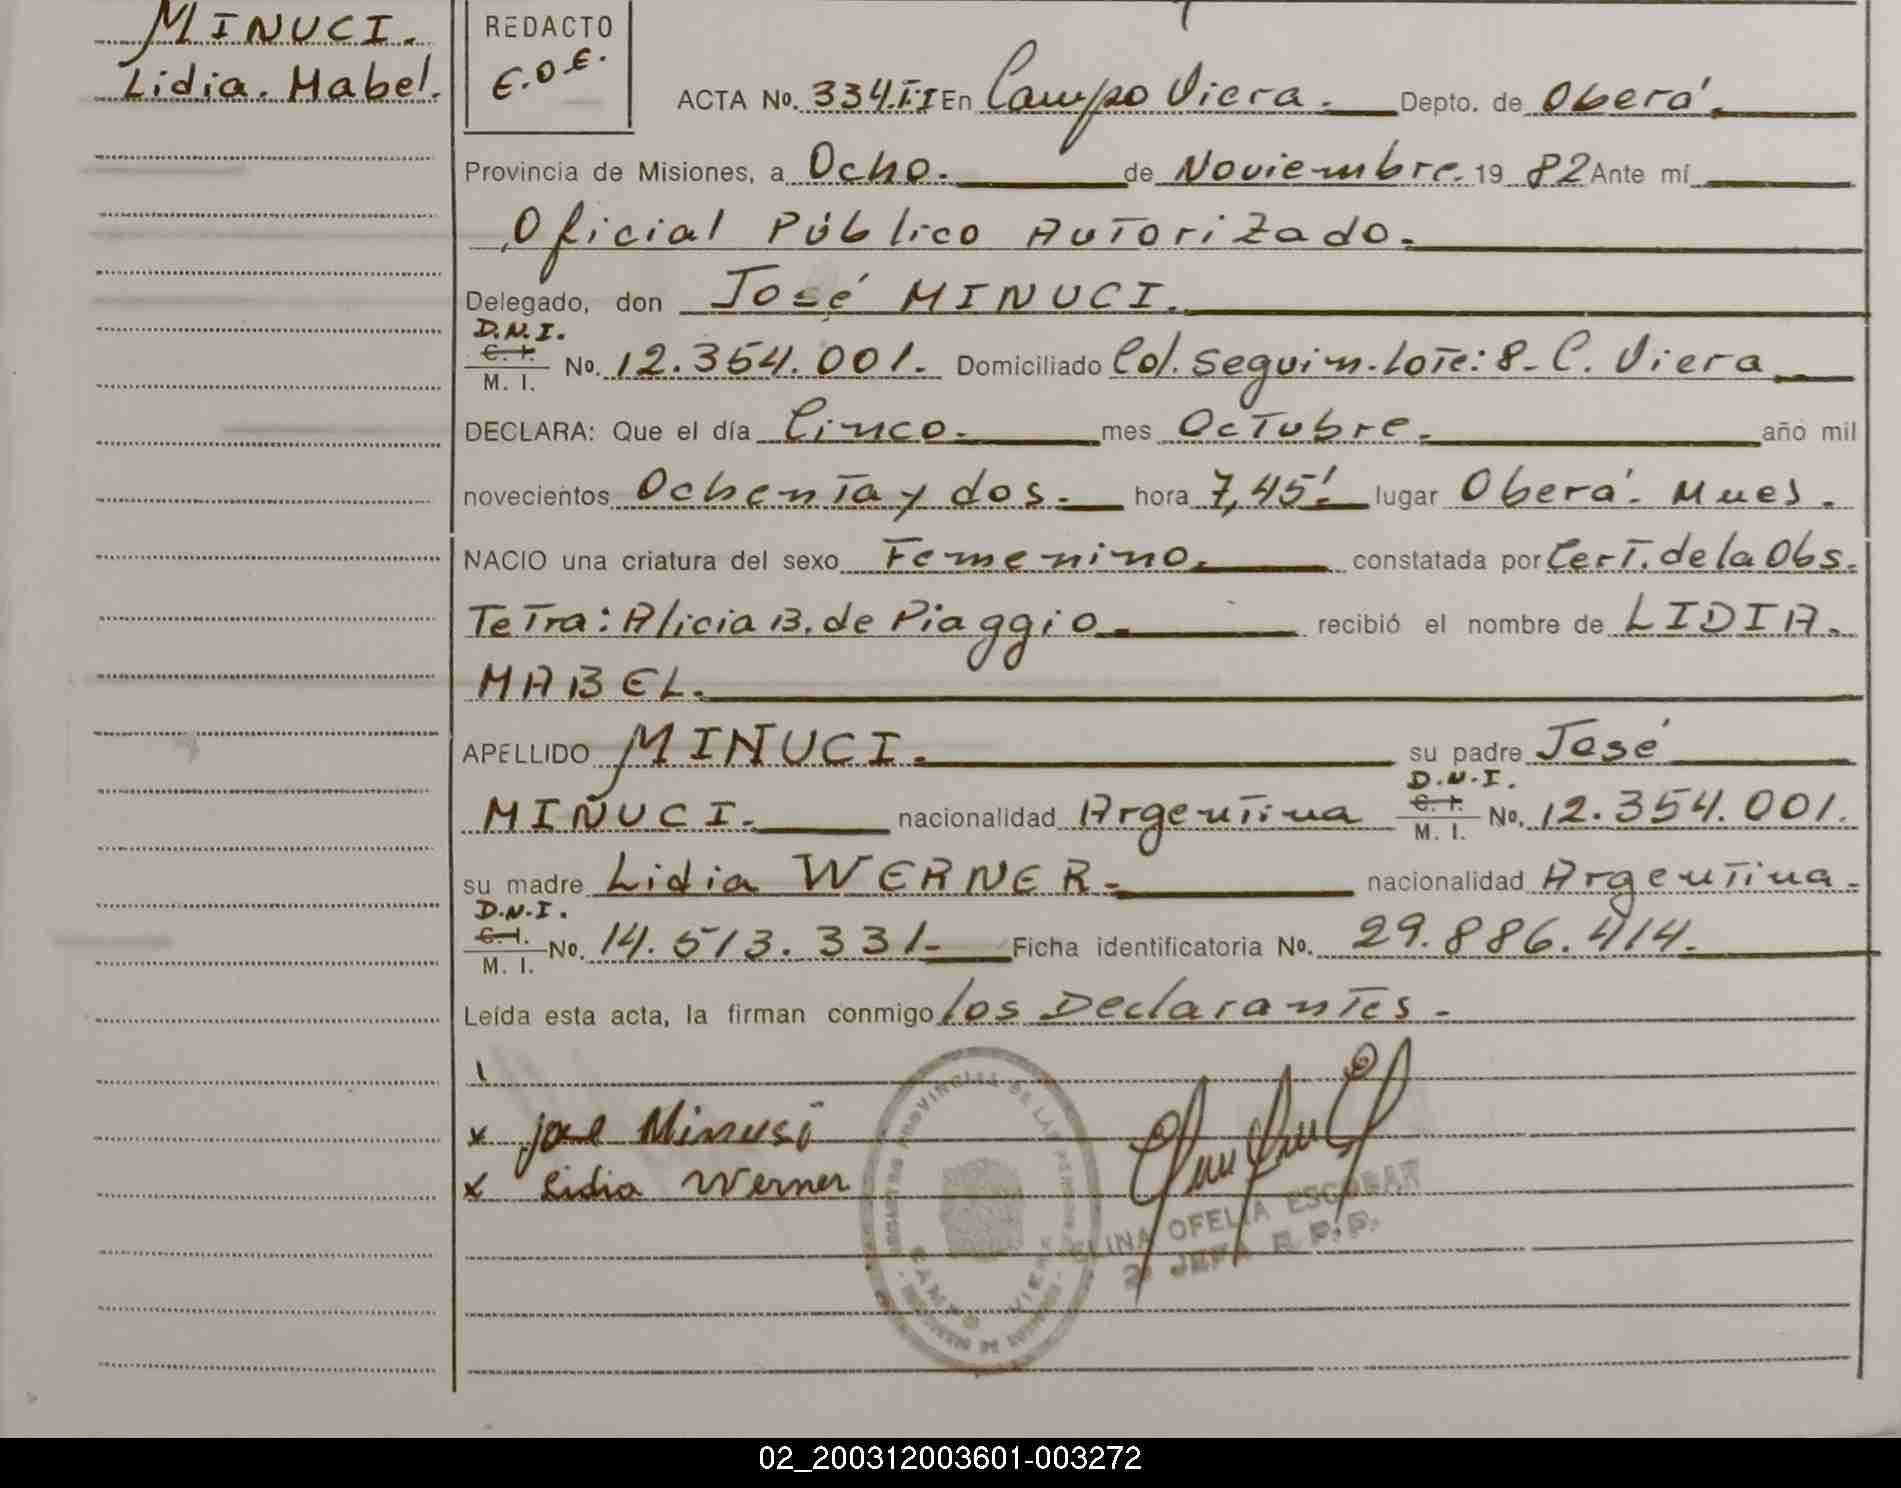 MINUCI.
Lidia. Mabel.
REDACTO
E.O.E.
ACTA No. 334.II En Campo Viera. Depto. de Oberá.
Provincia de Misiones, a Ocho. de Noviembre. 19 82 Ante mí
Oficial Público Autorizado.
Delegado, don José MINUCI.
D.N.I.
C. I.
M. I. No. 12.354.001. Domiciliado Col. Seguin. Lote: 8- C. Viera
DECLARA: Que el día Cinco. mes Octubre. año mil
novecientos Ochenta y dos. hora 7,45'. lugar Oberá. Mnes.
NACIO una criatura del sexo Femenino. constatada por Cert. de la Obs.
Tetra: Alicia B. de Piaggio. recibió el nombre de LIDIA.
MABEL.
APELLIDO MINUCI. su padre José
MINUCI. nacionalidad Argentina D.N.I. C. I. M. I. No. 12.354.001.
su madre Lidia WERNER. nacionalidad Argentina.
D.N.I.
C. I.
M. I. No. 14.513.331. Ficha identificatoria No. 29.886.414.
Leída esta acta, la firman conmigo los Declarantes.
x jose Minusi
x Lidia Werner
PROVINCIAL DE LAS PERSONAS
CAMPO VIERA
OFELIA ESCOBAR
2ª JEFA R. P. P.
02_200312003601-003272